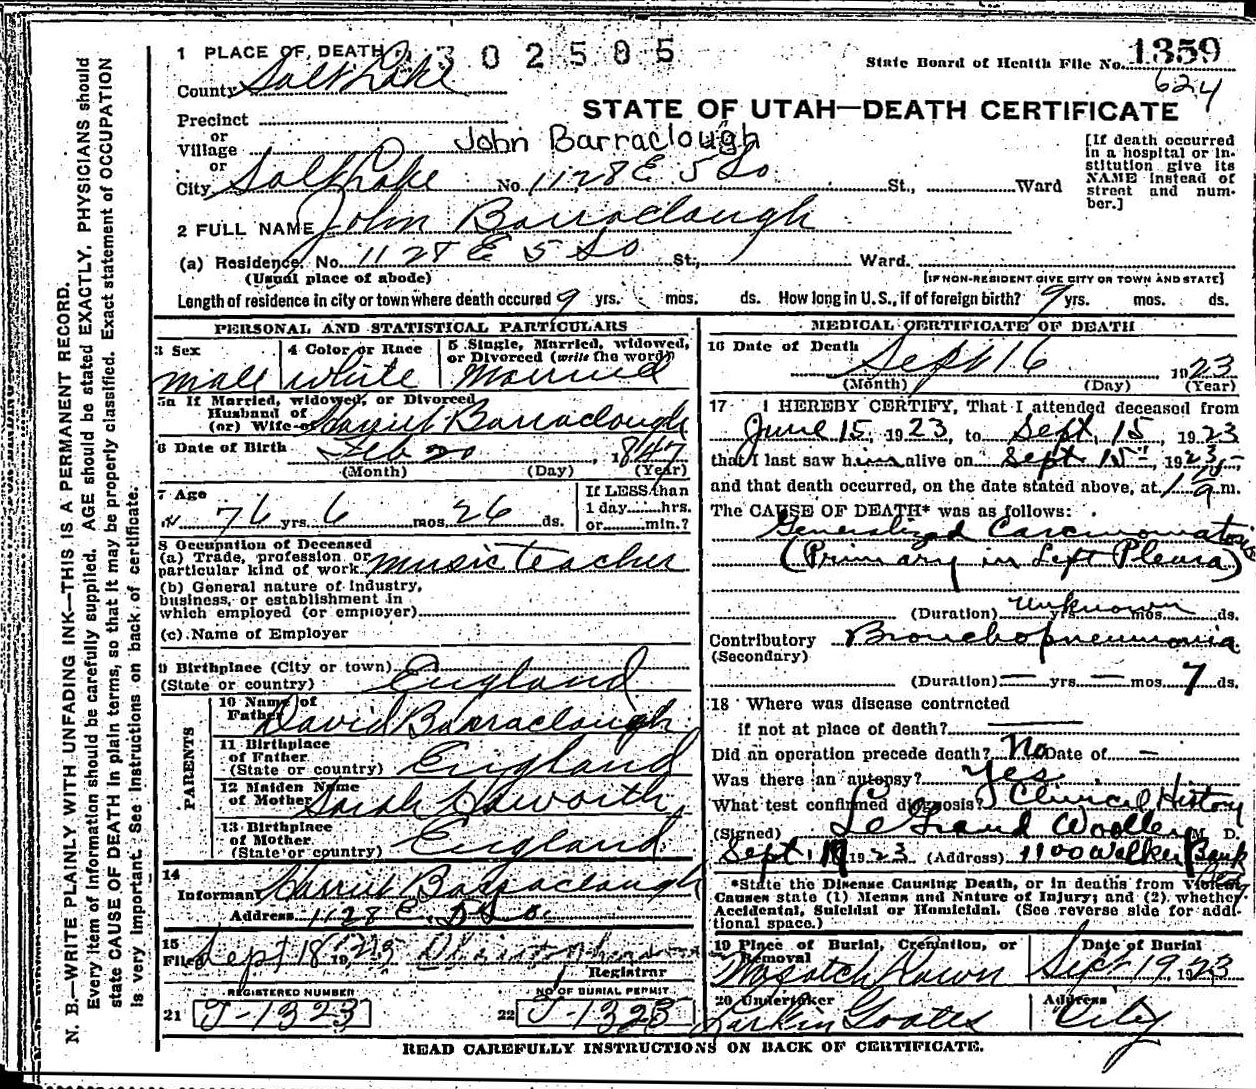 N. B.—WRITE PLAINLY WITH UNFADING INK—THIS IS A PERMANENT RECORD.
Every item of information should be carefully supplied. AGE should be stated EXACTLY. PHYSICIANS should
state CAUSE OF DEATH in plain terms, so that it may be properly classified. Exact statement of OCCUPATION
is very important. See instructions on back of certificate.
1 PLACE OF DEATH 302505
State Board of Health File No. 1359
624
County Salt Lake
STATE OF UTAH—DEATH CERTIFICATE
Precinct
or
Village John Barraclough
or
City Salt Lake No. 1128 E 5 So. St., Ward
[If death occurred
in a hospital or in-
stitution give its
NAME instead of
street and num-
ber.]
2 FULL NAME John Barraclough
(a) Residence. No. 1128 E 5 So St., Ward.
(Usual place of abode) [IF NON-RESIDENT GIVE CITY OR TOWN AND STATE]
Length of residence in city or town where death occured 9 yrs. mos. ds. How long in U. S., if of foreign birth? 9 yrs. mos. ds.
PERSONAL AND STATISTICAL PARTICULARS
3 Sex male
4 Color or Race White
5 Single, Married, widowed,
or Divorced (write the word)
Married
5a If Married, widowed, or Divorced
Husband of
(or) Wife of Harriet Barraclough
6 Date of Birth Feb 20, 1847
(Month) (Day) (Year)
7 Age
76 yrs. 6 mos. 26 ds.
If LESS than
1 day hrs.
or min.?
8 Occupation of Deceased
(a) Trade, profession, or
particular kind of work music teacher
(b) General nature of industry,
business, or establishment in
which employed (or employer)
(c) Name of Employer
9 Birthplace (City or town)
(State or country) England
PARENTS
10 Name of
Father David Barraclough
11 Birthplace
of Father
(State or country) England
12 Maiden Name
of Mother Sarah Haworth
13 Birthplace
of Mother
(State or country) England
14
Informant Harriet Barraclough
Address 1128 E. 5 So.
15
Filed Sept 18 192
Registrar
REGISTERED NUMBER
21 J-1323
NO OF BURIAL PERMIT
22 J-1323
MEDICAL CERTIFICATE OF DEATH
16 Date of Death
Sept 16 1923
(Month) (Day) (Year)
17 I HEREBY CERTIFY, That I attended deceased from
June 15, 1923, to Sept. 15, 1923
that I last saw him alive on Sept 15, 1923
and that death occurred, on the date stated above, at 1 a m.
The CAUSE OF DEATH* was as follows:
Generalized Carcinomatosis
(Primary in Left Pleura)
(Duration) Unknown yrs. mos. ds.
Contributory Bronchopneumonia
(Secondary)
(Duration) — yrs. — mos. 7 ds.
18 Where was disease contracted
if not at place of death?
Did an operation precede death? No Date of —
Was there an autopsy? Yes
What test confirmed diagnosis? Clinical History
(Signed) Le Grand Woolley M. D.
Sept. 1923 (Address) 1100 Walker Bank
*State the Disease Causing Death, or in deaths from Violent
Causes state (1) Means and Nature of Injury; and (2) whether
Accidental, Suicidal or Homicidal. (See reverse side for addi-
tional space.)
19 Place of Burial, Cremation, or
Removal
Wasatch Lawn
Date of Burial
Sept 19 1923
20 Undertaker
Larkin
Address
City
READ CAREFULLY INSTRUCTIONS ON BACK OF CERTIFICATE.